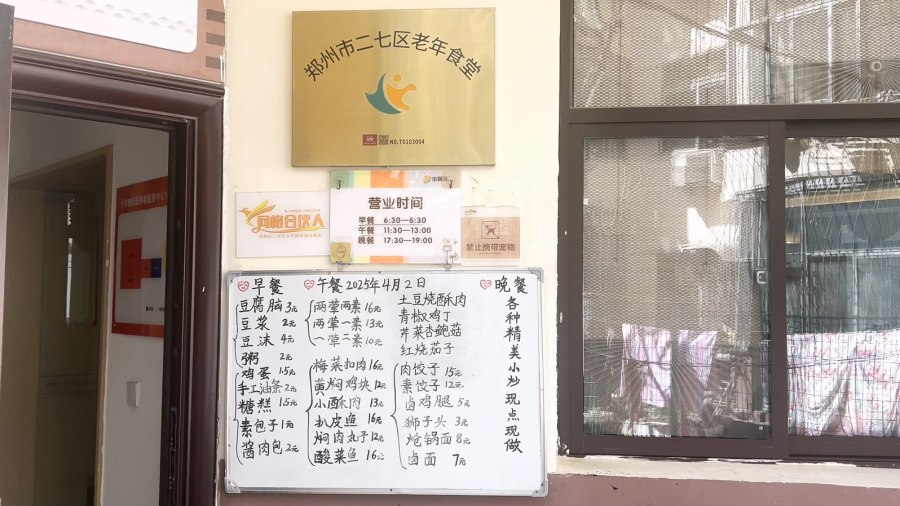 郑州市二七区老年食堂
NO.T0103004
网格合伙人
营业时间
早餐 6:30—8:30
午餐 11:30—13:00
晚餐 17:30—19:00
禁止携带宠物
早餐
豆腐脑 3元
豆浆 2元
豆沫 4元
粥 2元
鸡蛋 1.5元
手工油条 2元
糖糕 1.5元
素包子 1元
酱肉包 2元
午餐 2025年4月2日
两荤两素 16元
两荤一素 13元
一荤二素 10元
梅菜扣肉 16元
黄焖鸡块 12元
小酥肉 13元
扒皮鱼 16元
焖肉丸子 12元
酸菜鱼 16元
土豆烧酥肉
青椒鸡丁
芹菜杏鲍菇
红烧茄子
肉饺子 15元
素饺子 12元
卤鸡腿 5元
狮子头 3元
炝锅面 8元
卤面 7元
晚餐
各种精美小炒现点现做